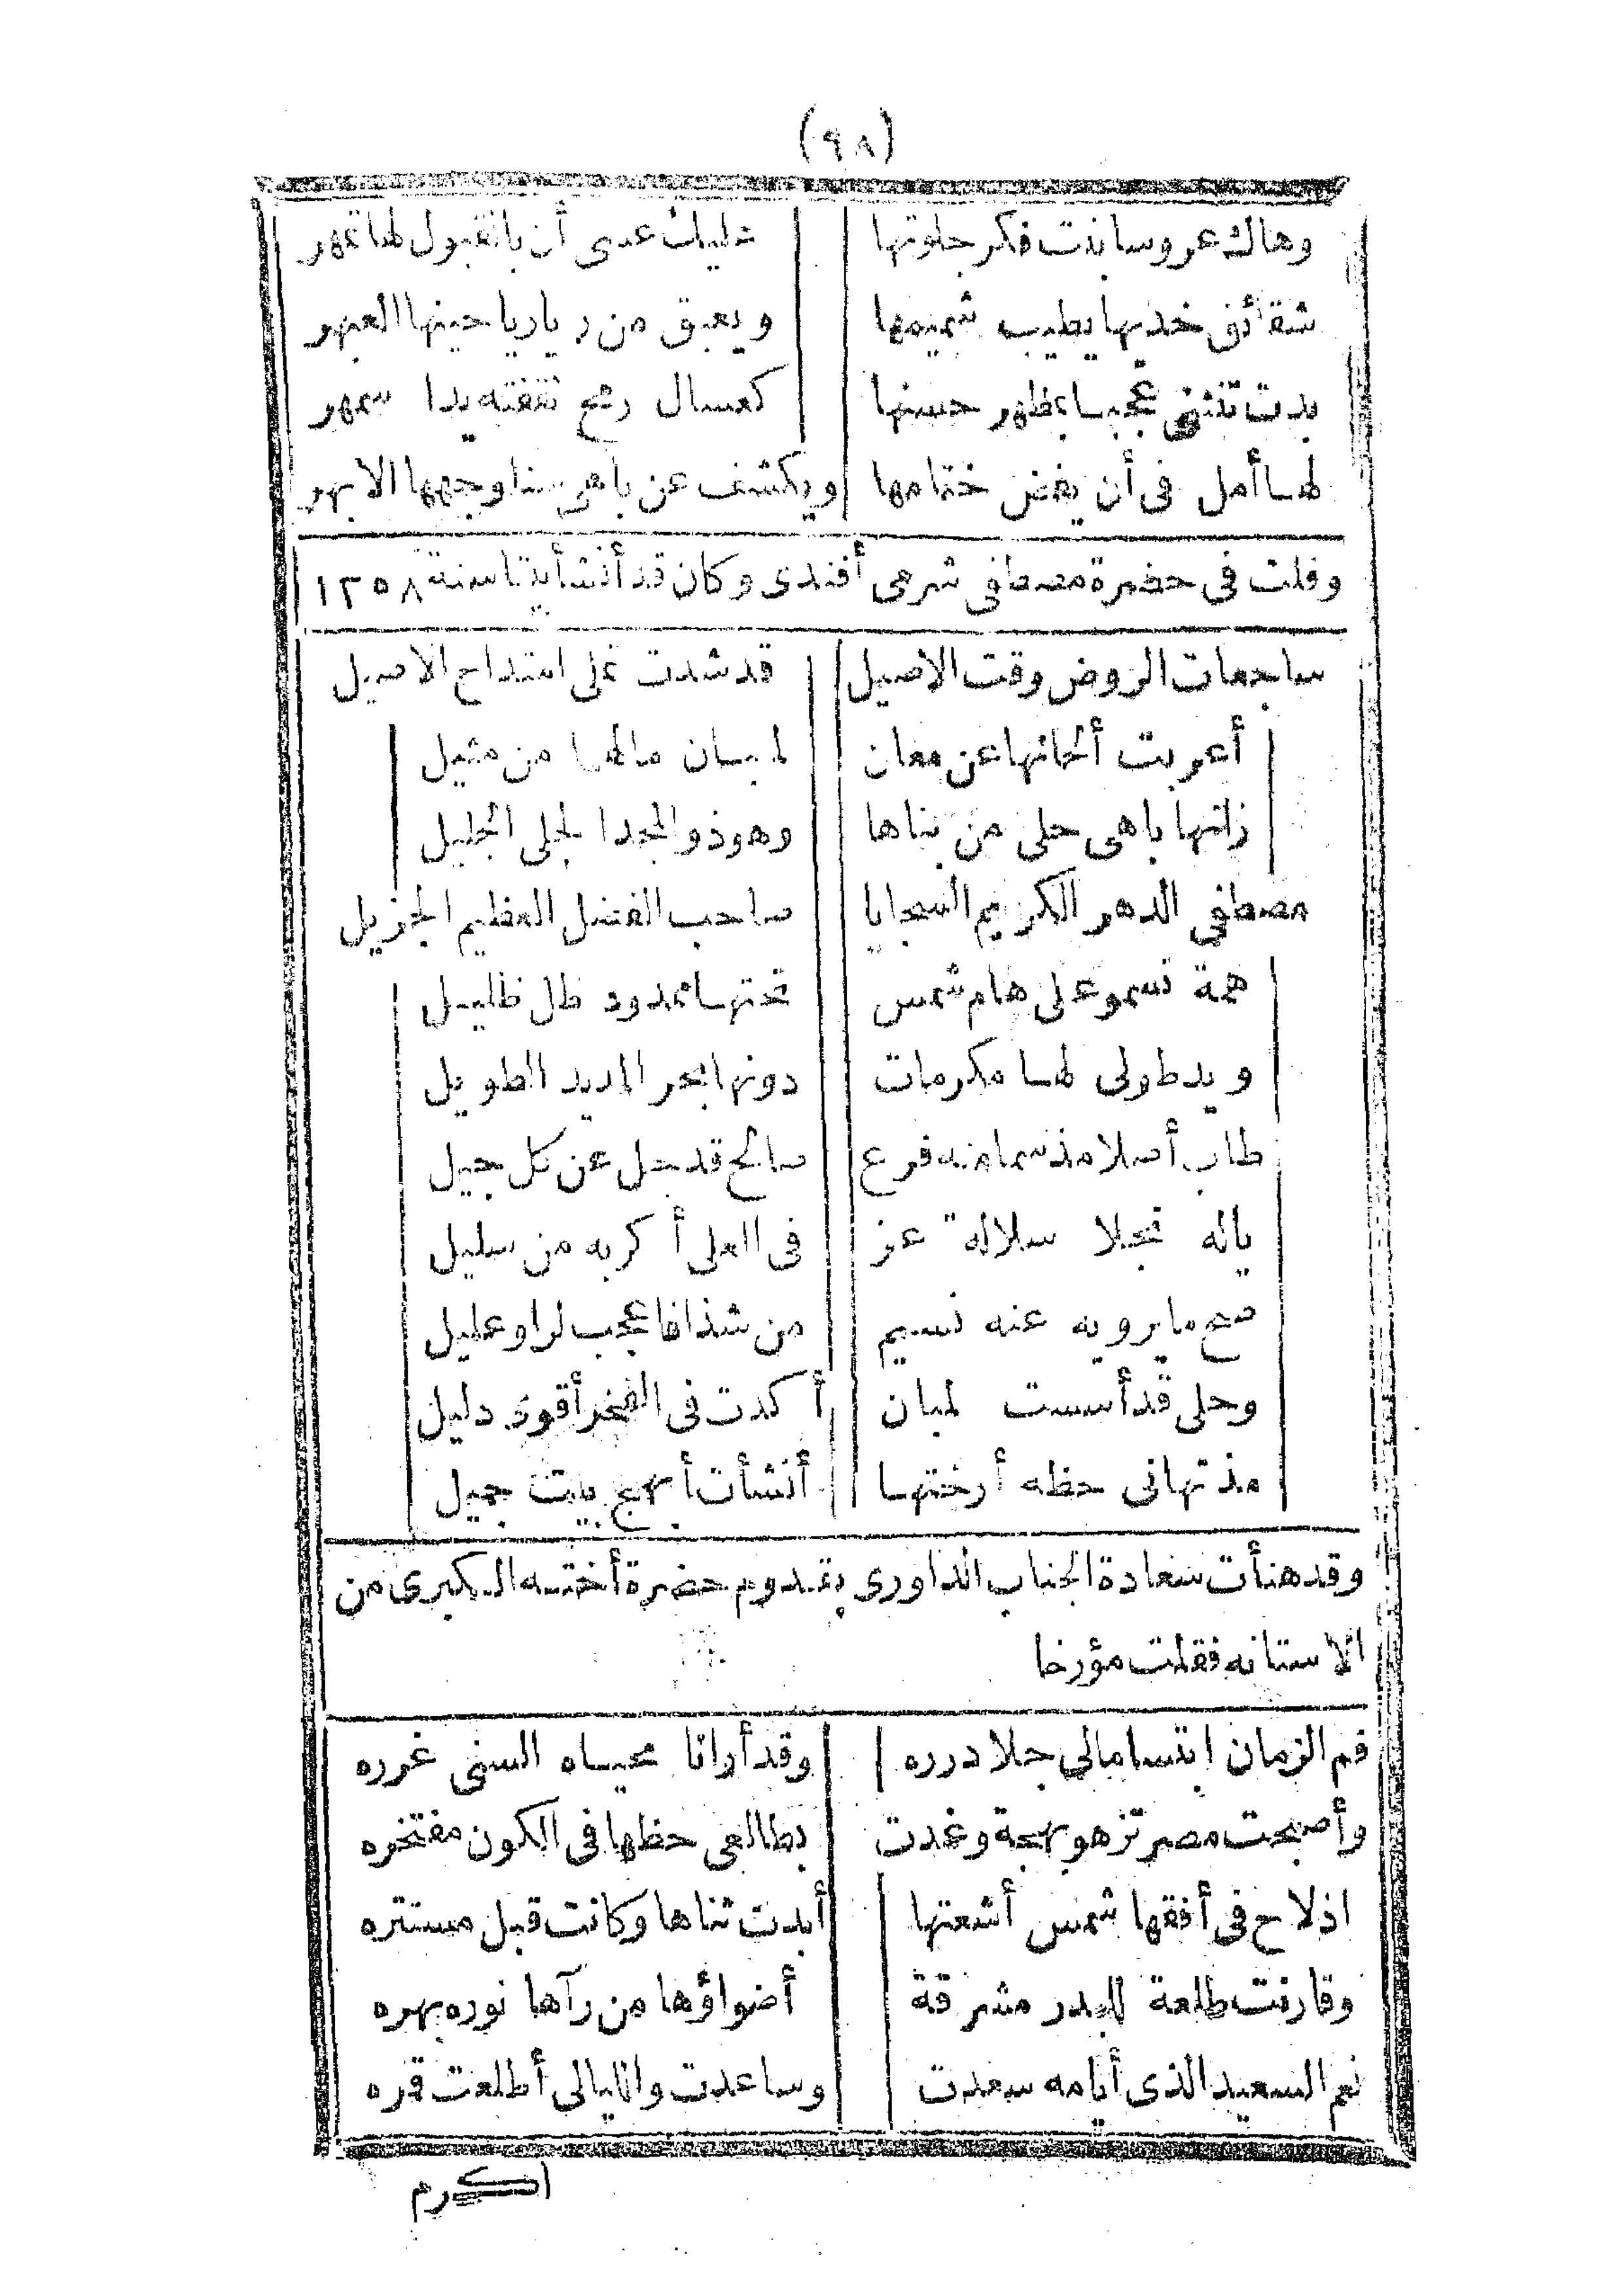 (٩٨)
وهاك عروسا بنت فكر جلوتها عليك عسى أن بالقبول لها تمهر
شقائق خديها يطيب شميمها ويعبق من ريا رياحينها العبهر
بدت تنثنى عجبا بمظهر حسنها كعسال رمح ثقفته يدا سمهر
لها أمل فى أن يفض ختامها ويكشف عن باهى سنا وجهها الابهر
وقلت فى حضرة مصطفى شرمى أفندى وكان قد أنشأ بيتا سنة ١٢٥٨
ساجعات الروض وقت الاصيل قد شدت على امتداح الاصيل
أعربت ألحانها عن معان لمبان مالها من مثيل
زانها باهى حلى من بناها وهو ذو المجد الجلى الجليل
مصطفى الدهر الكريم السجايا صاحب الفضل العظيم الجزيل
همة تسمو على هام شمس تحتها ممدود ظل ظليل
ويد طولى لها مكرمات دونها بحر المديد الطويل
طاب أصلا مذ سما منه فرع صالح قد جل عن كل جيل
ياله نجلا سلالة عز فى العلى أكرم به من سليل
صح ما يرويه عنه نسيم من شذا فاعجب لراو عليل
وحلى قد أسست لمبان أكدت فى الفخر أقوى دليل
مذ تهانى حظه أرختها أنشأت أبهج بيت جميل
وقد هنأت سعادة الجناب الداورى بقدوم حضرة أخته الكبرى من
الاستانه فقلت مؤرخا
فم الزمان ابتساما لى جلا درره وقد أرانا محياه السنى غرره
وأصبحت مصر تزهو بهجة وغدت بطالعى حظها فى الكون مفتخره
اذ لاح فى أفقها شمس أشعتها أبدت ثناها وكانت قبل مستتره
وقارنت طلعة للبدر مشرقة أضواؤها من رآها نوره بهره
نعم السعيد الذى أيامه سعدت وساعدت والليالى أطلعت قمره
اكرم